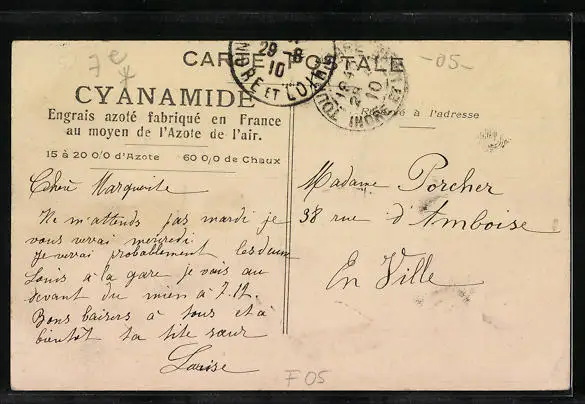 7e
*
-05-
CARTE POSTALE
29-8
10
INDRE ET LOIRE
TOURS
18
29
10
INDRE ET
CYANAMIDE
Engrais azoté fabriqué en France
au moyen de l'Azote de l'air.
15 à 20 0/0 d'Azote 60 0/0 de Chaux
à l'adresse
Chère Marguerite
Ne m'attends pas mardi je
vous verrai mercredi.
je verrai probablement les deux
Louis à la gare je vais au
devant du mien à 7.12.
Bons baisers à tous et à
bientôt ta tite sœur
Louise
Madame Porcher
38 rue d'Amboise
En Ville
F05